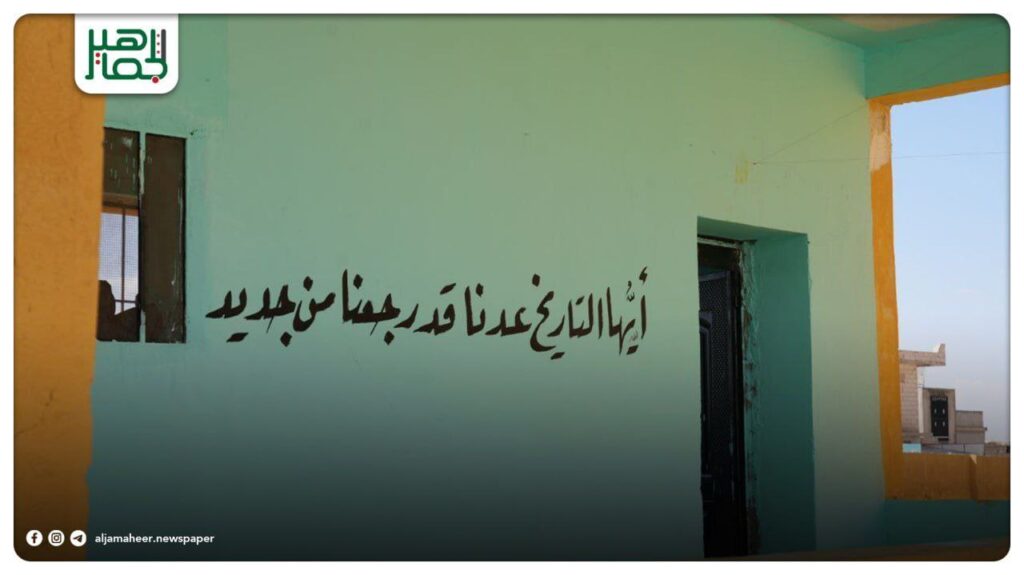 الجماهير
أيُّها التاريخ عدنا قد رجعنا من جديد
aljamaheer.newspaper